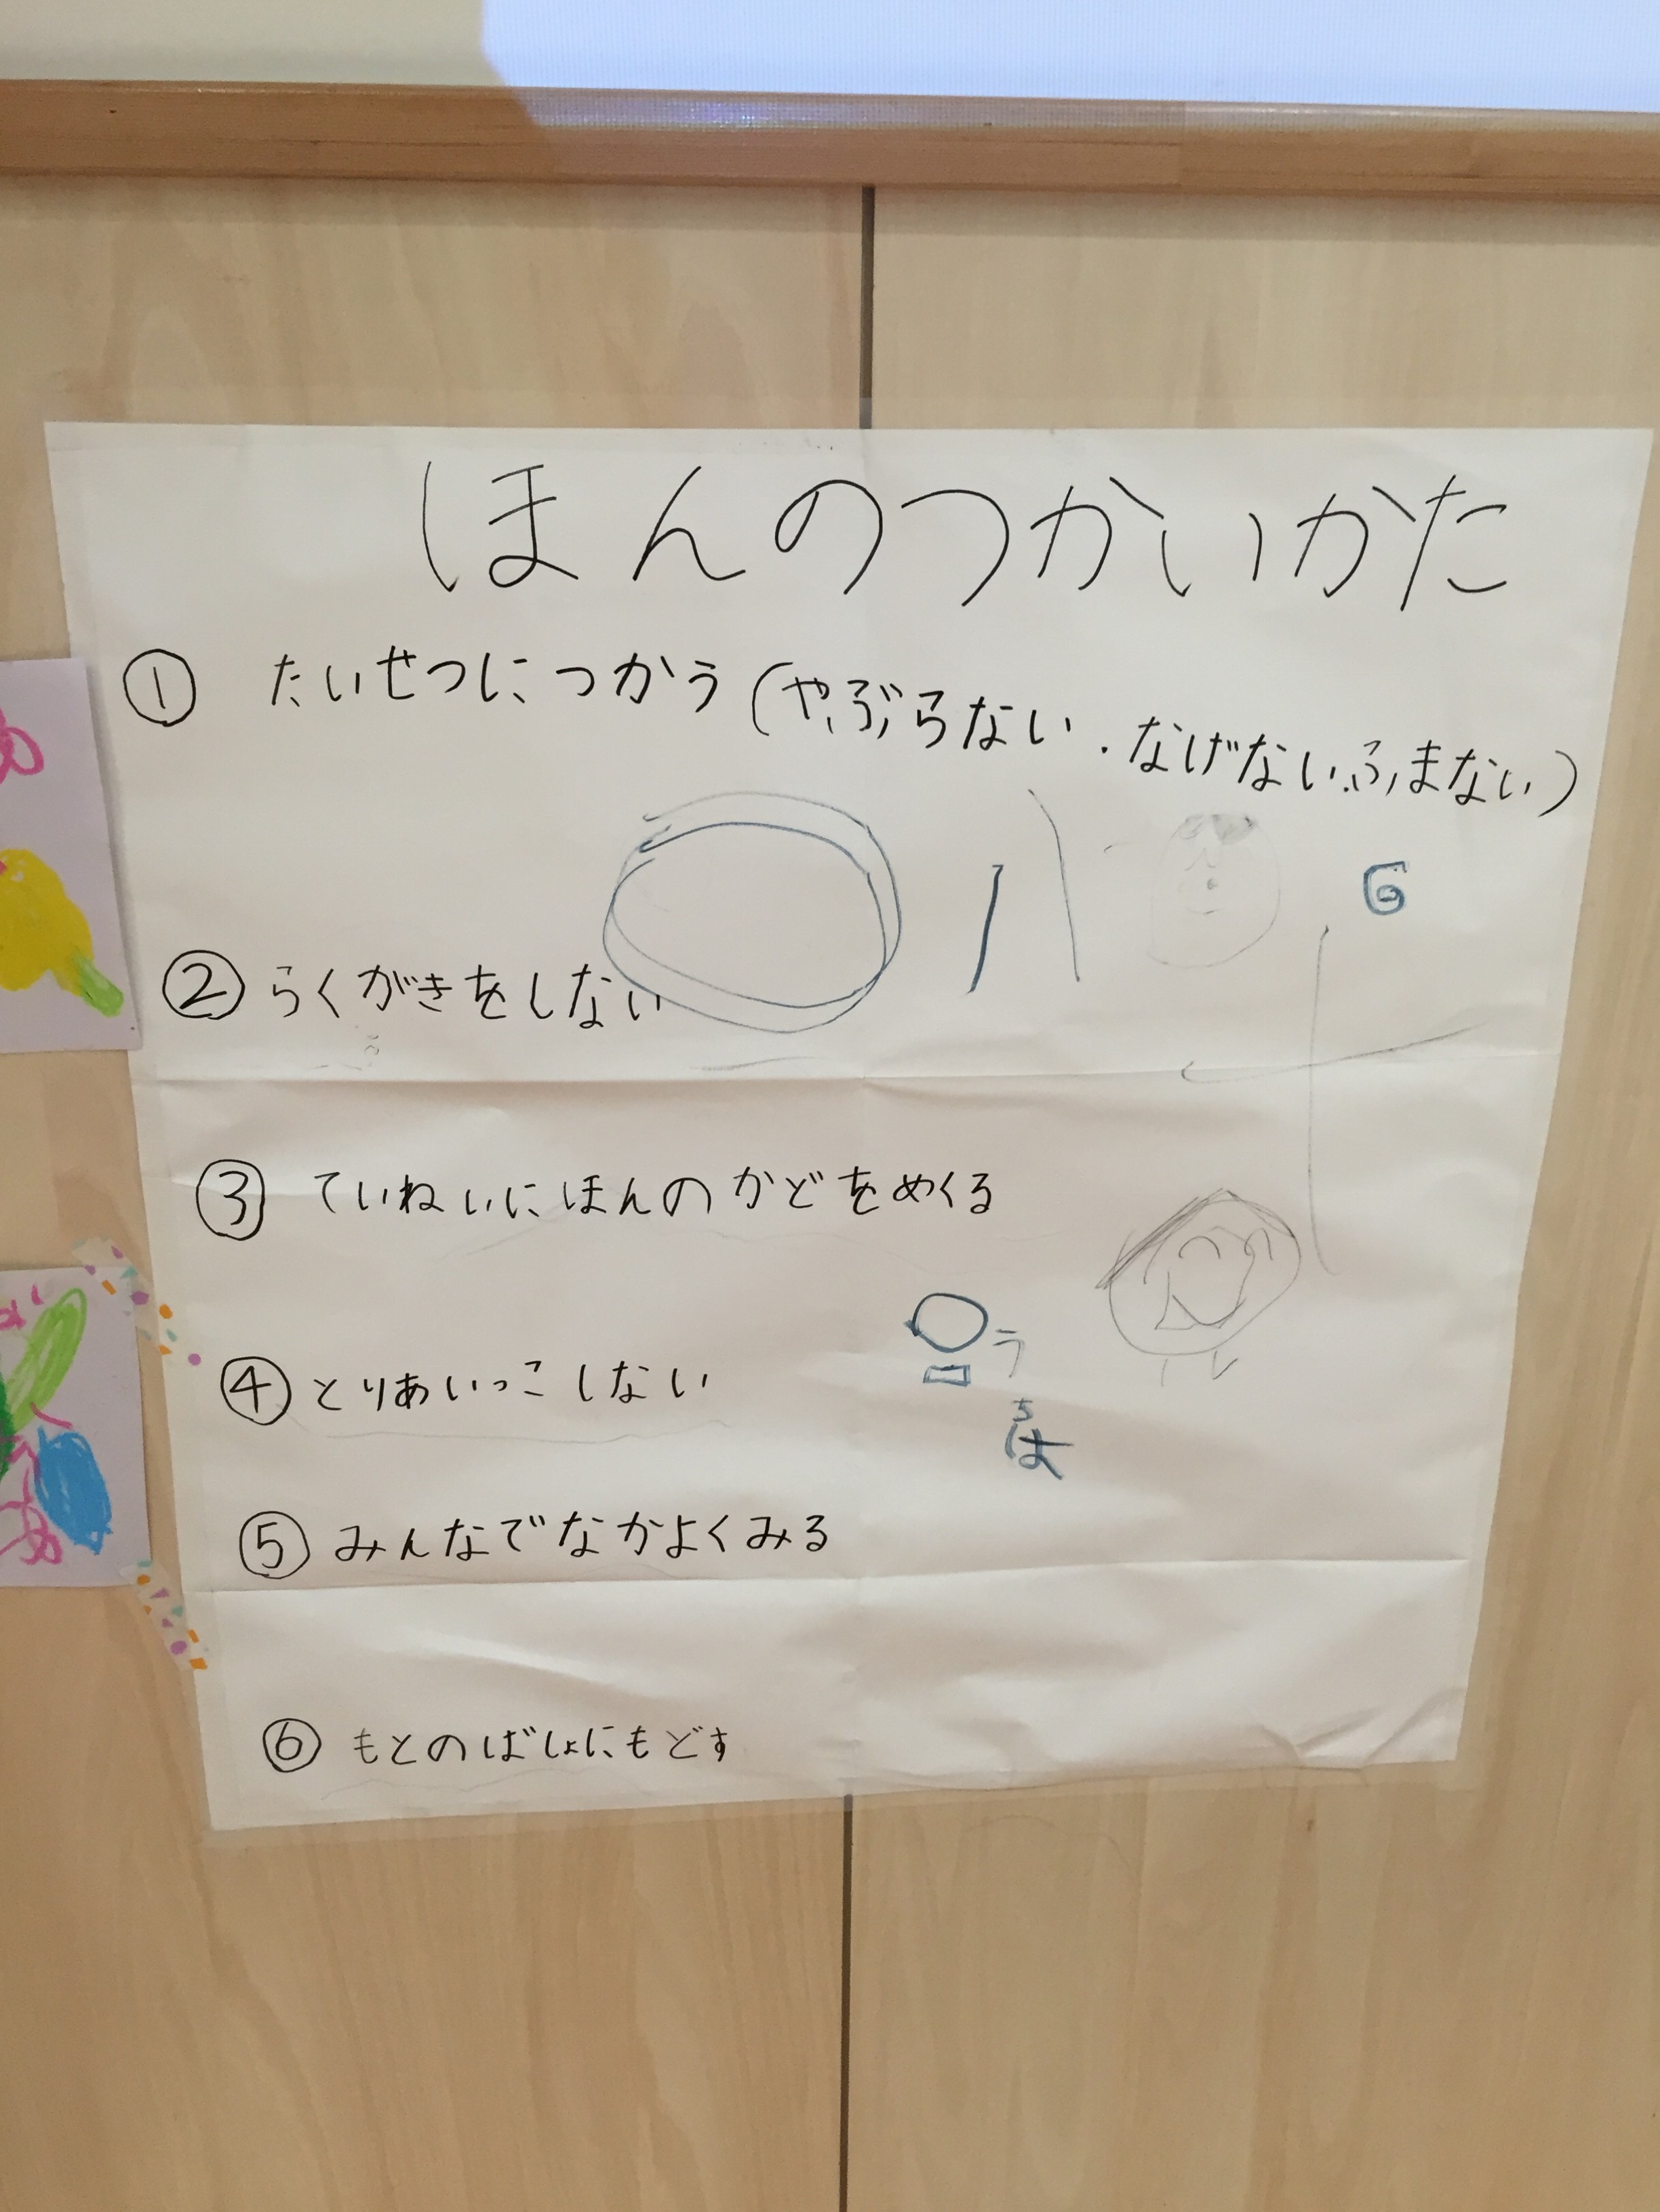 ほんのつかいかた
① たいせつにつかう(やぶらない・なげない・ふまない)
② らくがきをしない
③ ていねいにほんのかどをめくる
④ とりあいっこしない
⑤ みんなでなかよくみる
⑥ もとのばしょにもどす